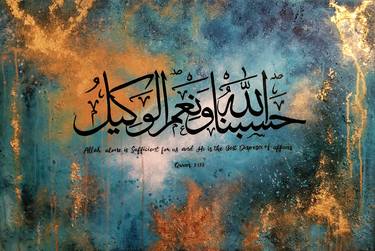 حسبنا الله ونعم الوكيل
Allah alone is Sufficient for us and He is the Best Disposer of affairs
Quran 3:173